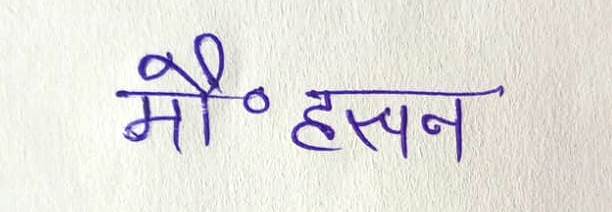 मौ० हसन